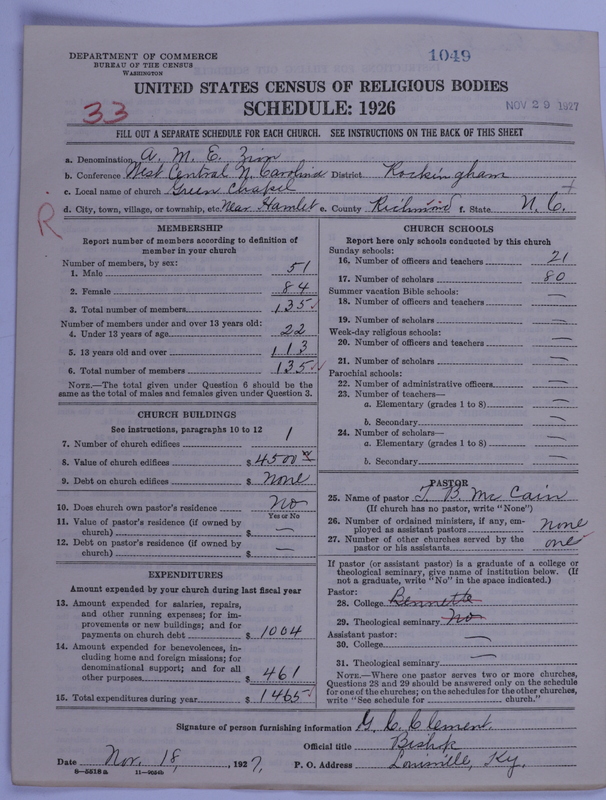 DEPARTMENT OF COMMERCE
BUREAU OF THE CENSUS
WASHINGTON
1049
UNITED STATES CENSUS OF RELIGIOUS BODIES
33
SCHEDULE: 1926
NOV 29 1927
FILL OUT A SEPARATE SCHEDULE FOR EACH CHURCH. SEE INSTRUCTIONS ON THE BACK OF THIS SHEET
a. Denomination A. M. E. Zion
b. Conference West Central N. Carolina District Rockingham
c. Local name of church Green Chapel
d. City, town, village, or township, etc. Near Hamlet e. County Richmond f. State N. C.
R
MEMBERSHIP
Report number of members according to definition of
member in your church
Number of members, by sex:
1. Male 51
2. Female 84
3. Total number of members 135
Number of members under and over 13 years old:
4. Under 13 years of age 22
5. 13 years old and over 113
6. Total number of members 135
NOTE.—The total given under Question 6 should be
same as the total of males and females given under Question 3.
CHURCH BUILDINGS
See instructions, paragraphs 10 to 12
7. Number of church edifices 1
8. Value of church edifices $ 4500
9. Debt on church edifices $ None
10. Does church own pastor's residence No
Yes or No
11. Value of pastor's residence (if owned by
church) $ —
12. Debt on pastor's residence (if owned by
church) $ —
EXPENDITURES
Amount expended by your church during last fiscal year
13. Amount expended for salaries, repairs,
and other running expenses; for im-
provements or new buildings; and for
payments on church debt $ 1004
14. Amount expended for benevolences, in-
cluding home and foreign missions; for
denominational support; and for all
other purposes $ 461
15. Total expenditures during year $ 1465
CHURCH SCHOOLS
Report here only schools conducted by this church
Sunday schools:
16. Number of officers and teachers 21
17. Number of scholars 80
Summer vacation Bible schools:
18. Number of officers and teachers —
19. Number of scholars —
Week-day religious schools:
20. Number of officers and teachers —
21. Number of scholars —
Parochial schools:
22. Number of administrative officers —
23. Number of teachers—
a. Elementary (grades 1 to 8) —
b. Secondary —
24. Number of scholars—
a. Elementary (grades 1 to 8) —
b. Secondary —
PASTOR
25. Name of pastor T. B. McCain
(If church has no pastor, write "None")
26. Number of ordained ministers, if any, em-
ployed as assistant pastors none
27. Number of other churches served by the
pastor or his assistants one
If pastor (or assistant pastor) is a graduate of a college or
theological seminary, give name of institution below. (If
not a graduate, write "No" in the space indicated.)
Pastor:
28. College Bennette
29. Theological seminary No
Assistant pastor:
30. College —
31. Theological seminary —
NOTE.—Where one pastor serves two or more churches,
Questions 28 and 29 should be answered only on the schedule
for one of the churches; on the schedules for the other churches,
write "See schedule for church."
Signature of person furnishing information G. C. Clement
Official title Bishop
Date Nov. 18, 1927, P. O. Address Louisville, Ky.
8—5518a 11—9654b